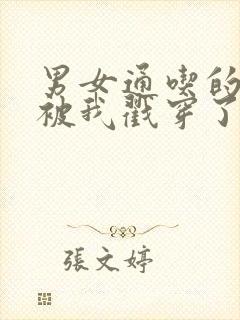 男女通喫的
被我戳穿了
張文婷